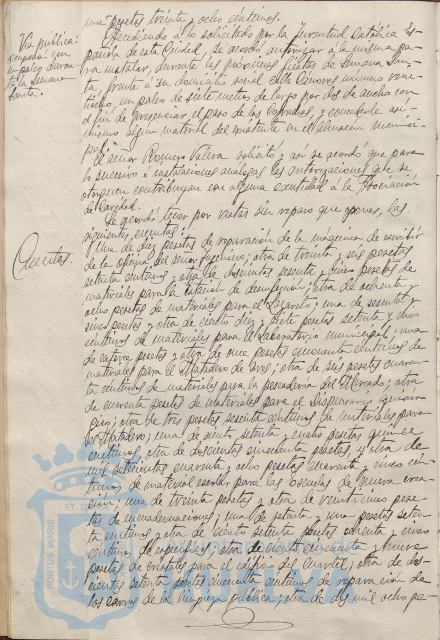 una pesetas treinta y ocho céntimos.
Vía pública:
ocupada con
un palco duran-
te la Semana
Santa.
Accediendo a lo solicitado por la Juventud Católica Es-
pañola de esta Ciudad, se acordó autorizar a la misma pa-
ra instalar, durante las próximas fiestas de Semana San-
ta, frente a su domicilio social calle Cánovas número vein-
tiocho, un palco de siete metros de largo por dos de ancho con
el fin de presenciar el paso de las Cofradías, y concederle así-
mismo algún material del existente en el Almacén munici-
pal.
El señor Romero Valera solicitó, y así se acordó que para
lo sucesivo e instalaciones análogas las autorizaciones que se
otorguen contribuyan con alguna cantidad a la Asociación
de Caridad.
Se acordó tener por vistas sin reparo que oponer, las
siguientes cuentas:
Cuentas.
Una de diez pesetas de reparación de la máquina de escribir
de la oficina del señor Ingeniero; otra de treinta y seis pesetas
setenta céntimos y otra de doscientas pesetas y cinco pesetas de
materiales para la Estación de desinfección; otra de ochenta y
ocho pesetas de materiales para el Lazareto; una de sesenta y
cinco pesetas y otra de ciento diez y siete pesetas setenta y dos
céntimos de materiales para el Laboratorio municipal; una
de catorce pesetas y otra de once pesetas cincuenta céntimos de
materiales para el Matadero de aves; otra de seis pesetas cuaren-
ta céntimos de materiales para la pescadería del Mercado; otra
de cuarenta pesetas de materiales para el Dispensario quirúr-
gico; otra de tres pesetas sesenta céntimos de materiales para
el Matadero; una de ciento setenta y cuatro pesetas quince
céntimos, otra de doscientas cincuenta pesetas, y otra de
mil setecientas cuarenta y ocho pesetas cuarenta y cinco cén-
timos de material escolar para las Escuelas de nueva crea-
ción; una de treinta pesetas y otra de veinticinco pese-
tas de encuadernaciones; una de setenta y una pesetas seten-
ta céntimos y otra de ciento setenta pesetas ochenta y cinco
céntimos de impresos; otra de ciento cincuenta y nueve
pesetas de cristales para el edificio del Cuartel; otra de dos-
cientas setenta pesetas cincuenta céntimos de reparación de
los carros de la limpieza pública; otra de dos mil ocho pe-